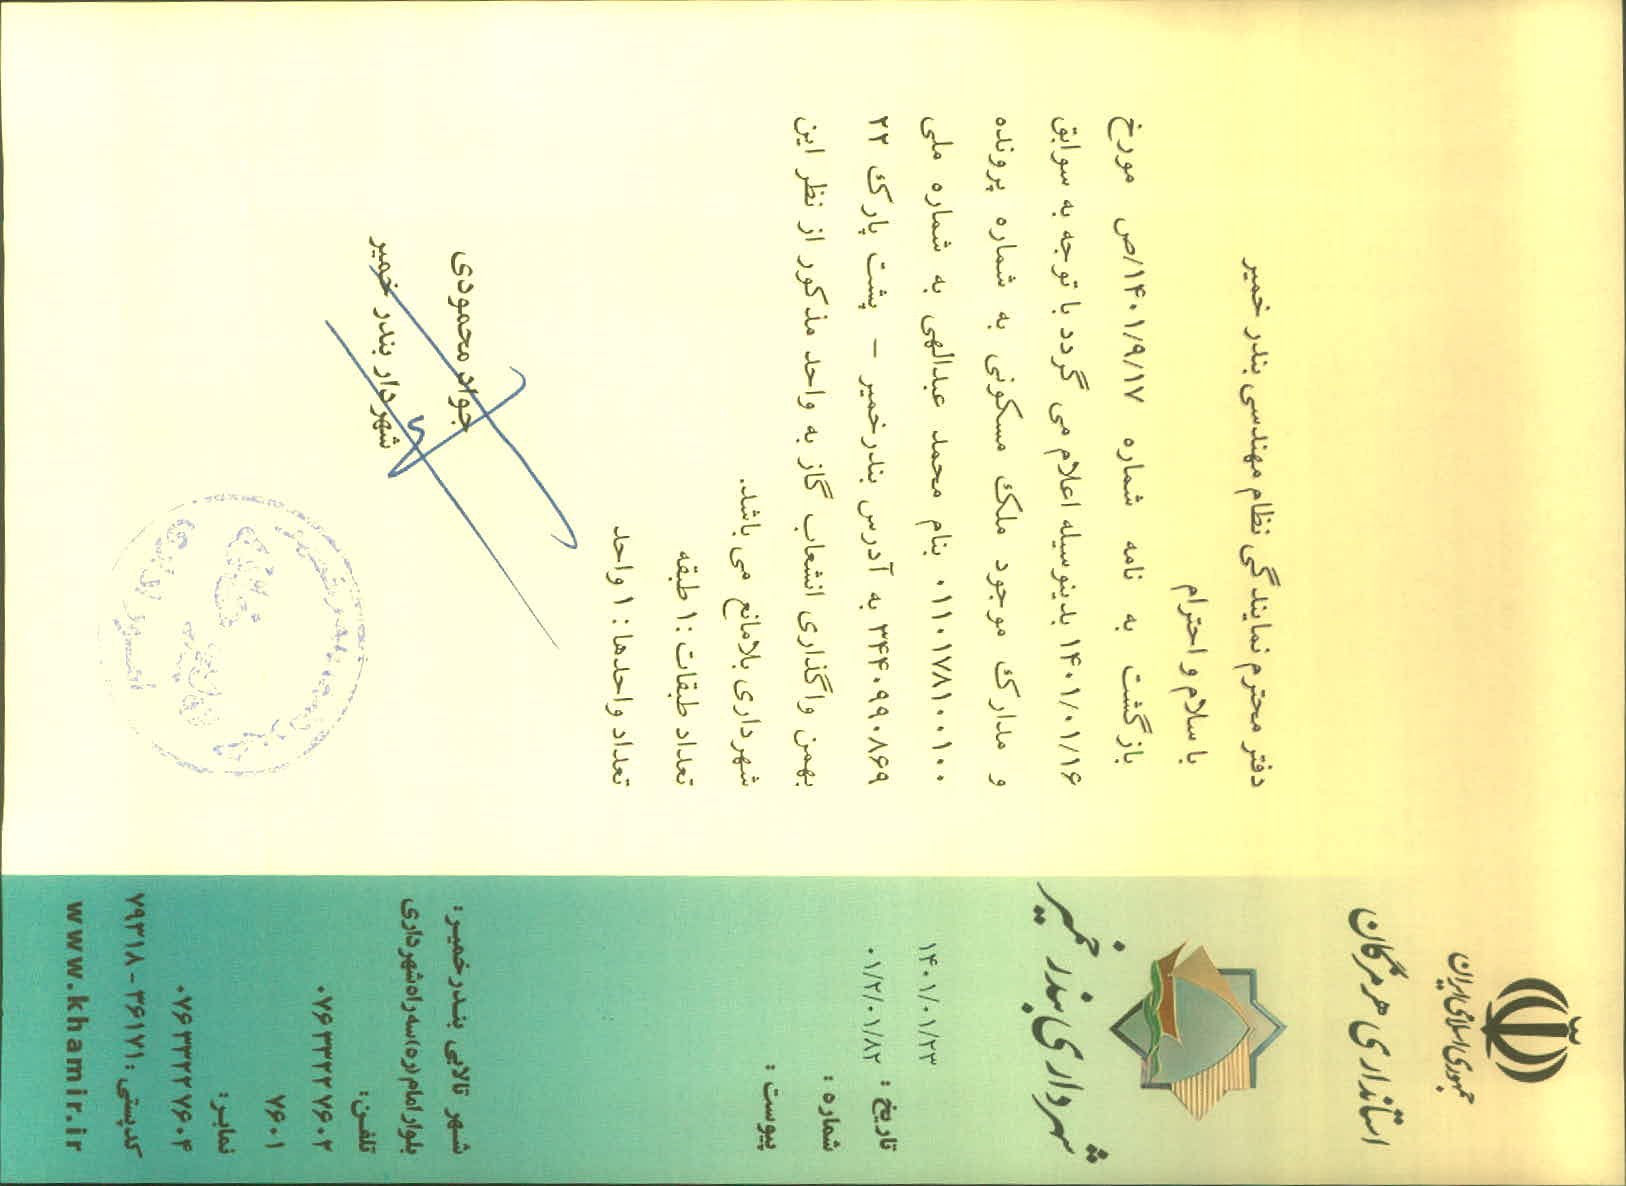 جمهوری اسلامی ایران
استانداری هرمزگان
شهرداری بندر خمیر
۱۴۰۱/۰۱/۲۳
۰۱/۲/۰۱/۸۲
تاریخ :
شماره :
پیوست :
دفتر محترم نمایندگی نظام مهندسی بندر خمیر
با سلام و احترام
بازگشت به نامه شماره ۱۴۰۱/۹/۱۷/ص مورخ
۱۴۰۱/۰۱/۱۶ بدینوسیله اعلام می گردد با توجه به سوابق
و مدارک موجود ملک مسکونی به شماره پرونده
۰۱۱۰۱۷۸۱۰۰۱۰۰ بنام محمد عبدالهی به شماره ملی
۳۴۴۰۹۹۰۸۶۹ به آدرس بندرخمیر – پشت پارک ۲۲
بهمن واگذاری انشعاب گاز به واحد مذکور از نظر این
شهرداری بلامانع می باشد.
تعداد طبقات :۱ طبقه
تعداد واحدها : ۱ واحد
جواد محمودی
شهردار بندر خمیر
شهر تالابی بندرخمیر:
بلوار امام (ره) سه راه شهرداری
تلفن:
۰۷۶۳۳۲۲۷۶۰۲
۷۶۰۱
نمابر:
۰۷۶۳۳۲۲۷۶۰۴
کدپستی : ۳۶۱۷۱ - ۷۹۳۱۸
www.khamir.ir